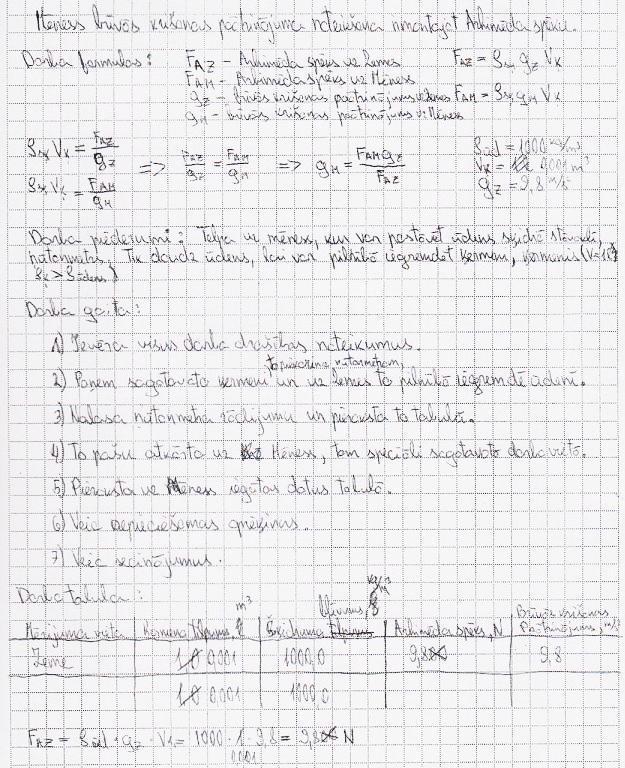 Mēness brīvās krišanas paātrinājuma noteikšana izmantojot Arhimēda spēku.
Darba formulas:
F_AZ – Arhimēda spēks uz Zemes
F_AM – Arhimēda spēks uz Mēness
g_Z – brīvās krišanas paātrinājums uz Zemes
g_M – brīvās krišanas paātrinājums uz Mēness
F_AZ = ρ_šķ g_Z V_K
F_AM = ρ_šķ g_M V_K
ρ_šķ V_K = F_AZ / g_Z
ρ_šķ V_K = F_AM / g_M
=> F_AZ / g_Z = F_AM / g_M => g_M = F_AM g_Z / F_AZ
ρ_ūd = 1000 kg/m³
V_K = 0,001 m³
g_Z = 9,8 m/s²
Darba piederumi: Telpa uz mēness, kur var pastāvēt ūdens šķidrā stāvoklī,
ņūtonmetrs. Tik daudz ūdens, lai var pilnībā iegremdēt ķermeni, ķermenis (V=1 l)
ρ_k > ρ_ūdens)
Darba gaita:
1) Ievēro visus darba drošības noteikumus.
to piekarina ņūtonmetram,
2) Paņem sagatavoto ķermeni un uz Zemes to pilnībā iegremdē ūdenī.
3) Nolasa ņūtonmetra rādījumu un pieraksta to tabulā.
4) To pašu atkārto uz Mēness, tam speciāli sagatavotā darba vietā.
5) Pieraksta uz Mēness iegūtos datus tabulā.
6) Veic nepieciešamos aprēķinus.
7) Veic secinājumus.
Darba tabula:
Mērījuma vieta Ķermeņa tilpums, m³ Šķidruma blīvums kg/m³ Arhimēda spēks, N Brīvās krišanas paātrinājums, m/s²
Zeme 1,0 0,001 1000,0 9,8 9,8
1,0 0,001 1000,0
F_AZ = ρ_ūd · g_Z · V_K = 1000 · 1 · 9,8 = 9,8 N
0,001